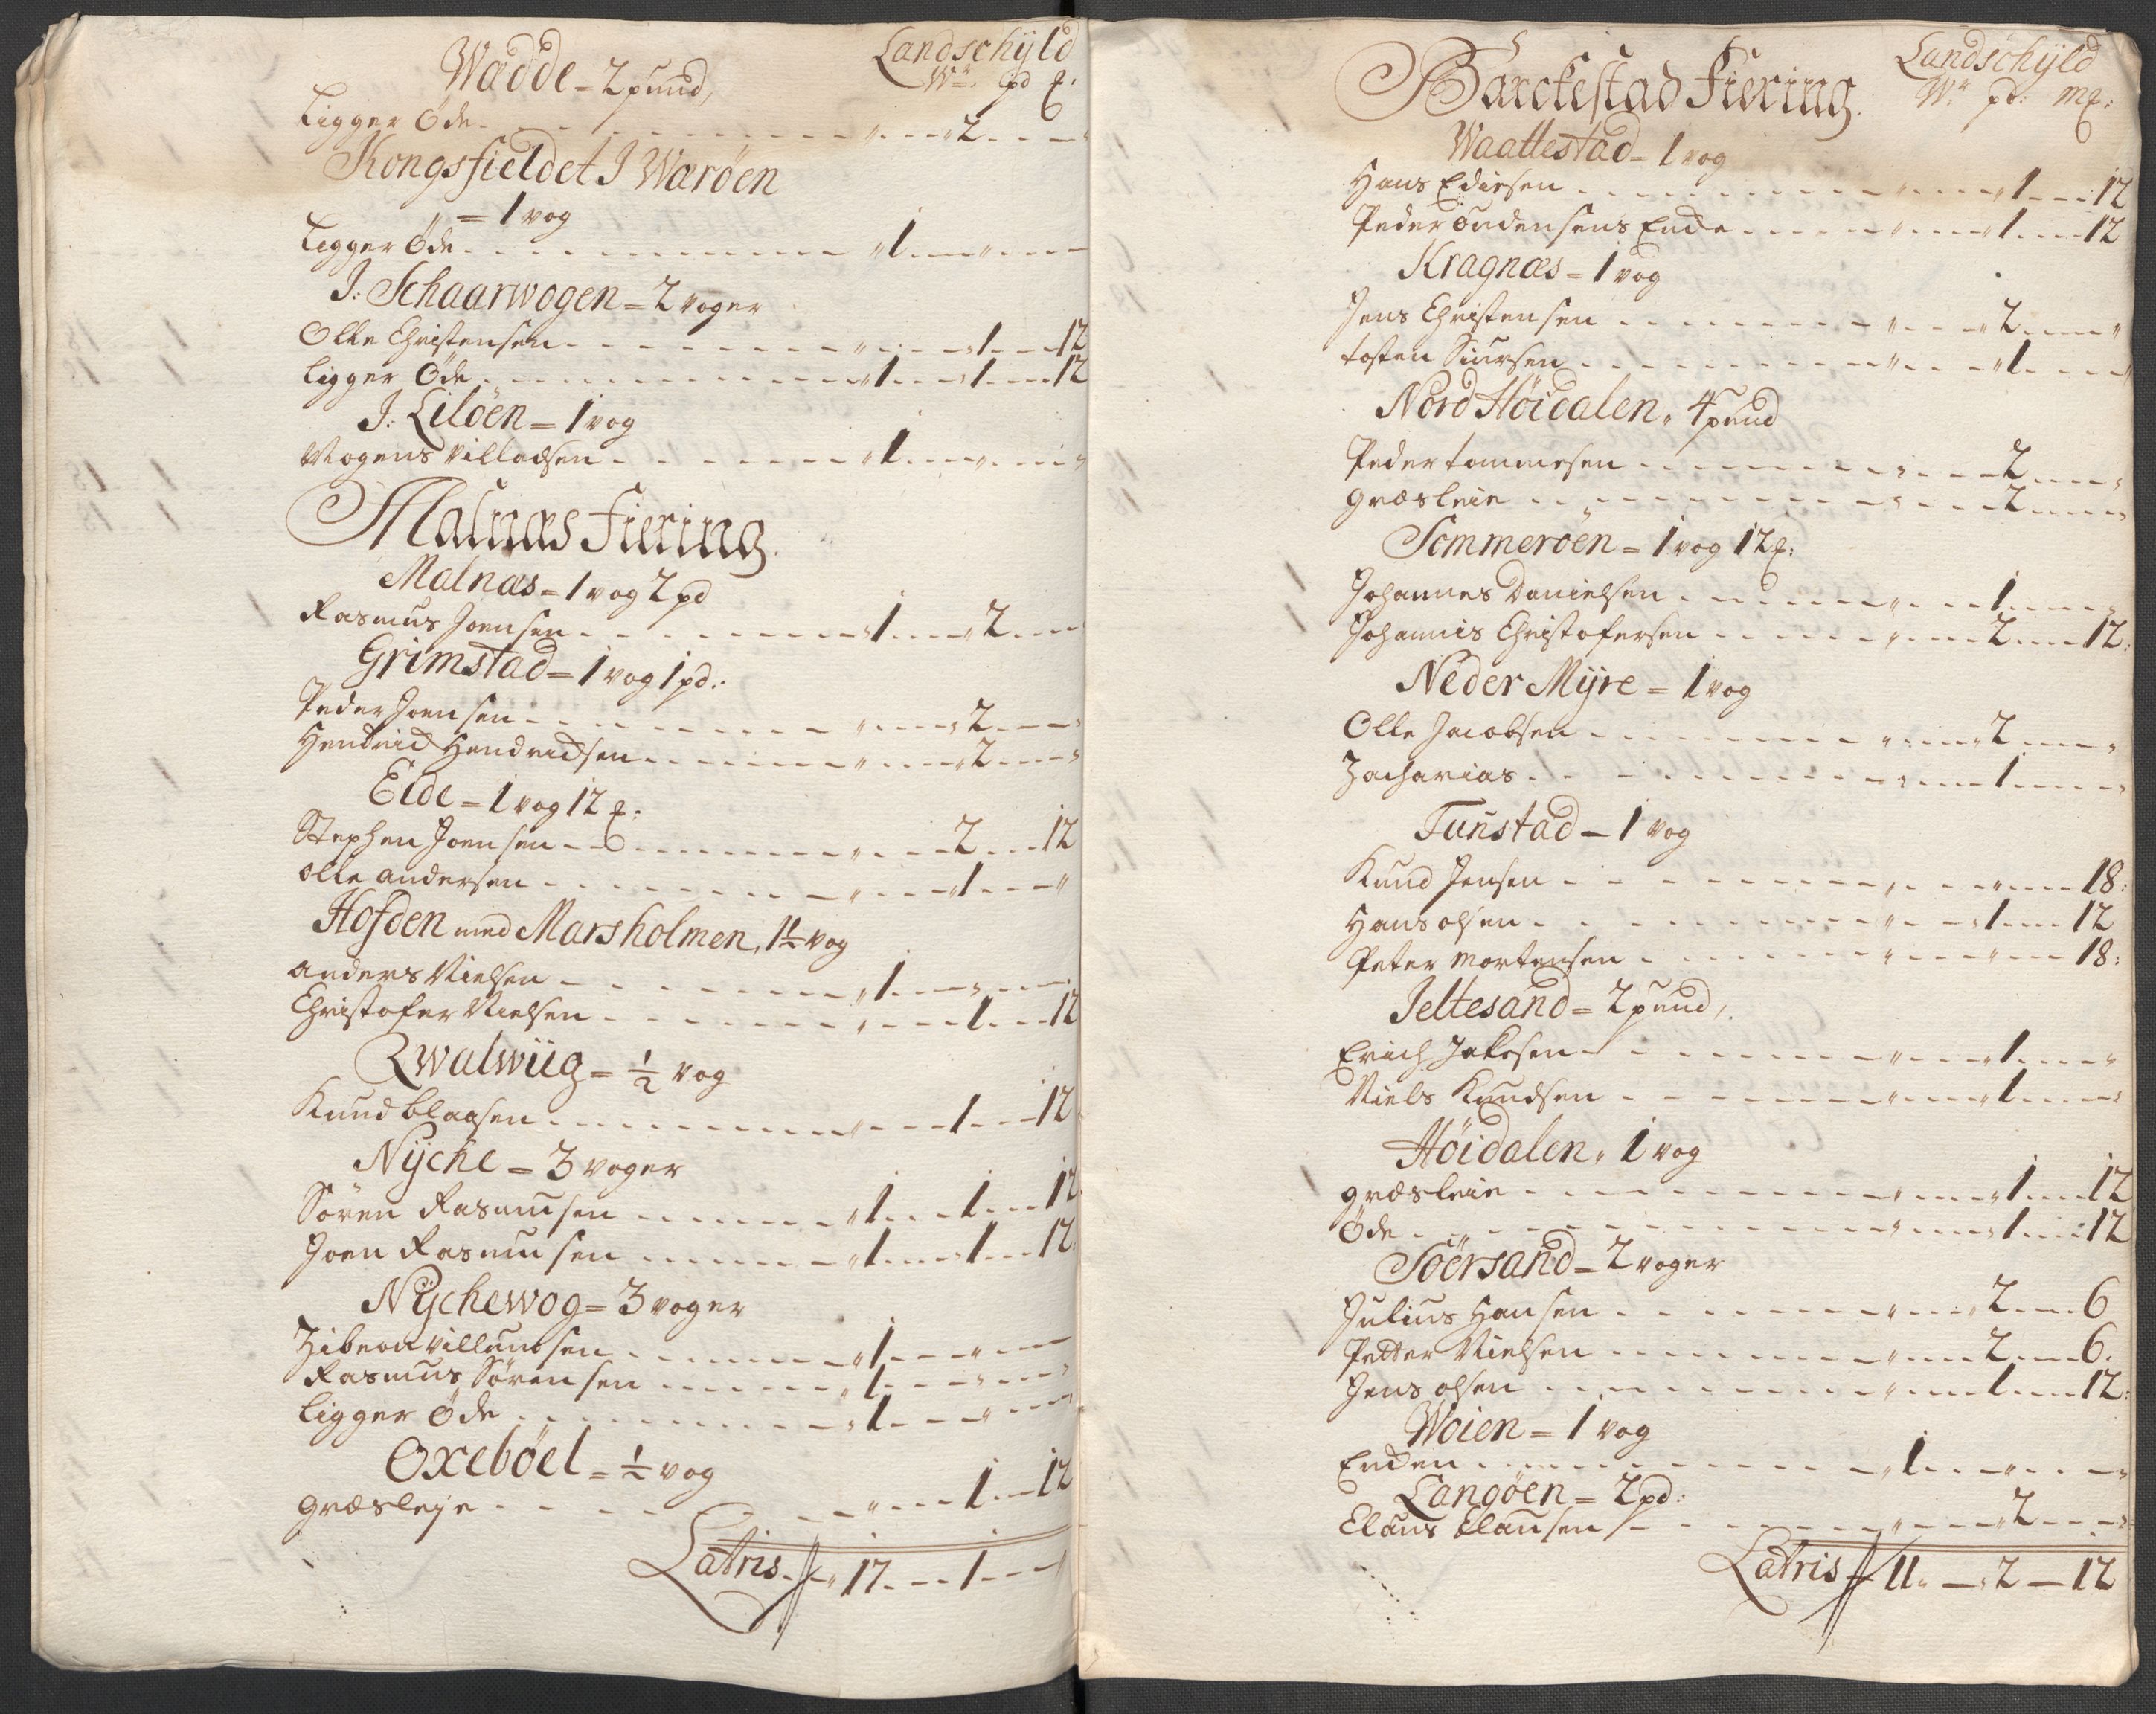 Wadde = 2 pund,
Landschÿld
Wr. pd ꝑ.
Ligger Öde . . . . " . . . 2 . . . "
Kongsfieldet J Wæröen
= 1 vog
Ligger Öde . . . . " 1 . . . " . . .
J: Schaarwogen = 2 voger
Olle Christensen . . . . " . . . 1 . . . 12
Ligger Öde . . . . " 1 . . . 1 . . . 12
J: Lilöen = 1 vog
Mogens Villadsen . . . . " 1 . . . " . . . "
Malnæs Fiering.
Malnæs = 1 vog 2 pd
Rasmus Joensen . . . . " 1 . . . 2 . . .
Grimstad = 1 vog 1 pd:
Peder Joensen . . . . " . . . 2 . . . "
Hendrich Hendrichsen . . . . " . . . 2 . . . "
Eide = 1 vog 12 ꝑ:
Stephen Joensen . . . . " . . . 2 . . . 12
Olle Andersen . . . . " . . . 1 . . . "
Hofden med Marsholmen, 1½ vog
Anders Nielsen . . . . " 1 . . . " . . .
Christofer Nielsen . . . . " . . . 1 . . . 12
Qwalwiig = ½ vog
Knud Claasen . . . . " . . . 1 . . . 12
Nÿcke = 3 voger
Sören Rasmusen . . . . " 1 . . . 1 . . . 12
Joen Rasmusen . . . . " 1 . . . 1 . . . 12.
Nÿckewog = 3 voger
Villumsen . . . . " 1 . . . " . . .
Rasmus Sörensen . . . . " 1 . . . " . . . "
Ligger Öde . . . . " 1 . . . " . . .
Oxeböel = ½ vog
Græsleje . . . . " . . . 1 . . . 12
Latris . . " 17 . . . 1 . . . "
Barckestad Fiering.
Landschÿld
Wr pd: mꝑ:
Waattestad = 1 vog
Hans Edissen . . . . " . . . 1 . . . 12
Peder Endensens Encke . . . . " . . . 1 . . . 12
Kragnæs = 1 vog
Jens Christensen . . . . " . . . 2 . . . "
Tosten Siursen . . . . " . . . 1 . . . "
Nord Höidalen, 4 pund
Peder Tommesen . . . . " . . . 2 . . . "
Græsleie . . . . " . . . 2 . . . "
Sommeröen = 1 vog 12 ꝑ:
Johannes Danielsen . . . . " . . . 1 . . . "
Johannis Christofersen . . . . " . . . 2 . . . 12:
Neder Mÿre = 1 vog
Olle Jacobsen . . . . " . . . 2 . . . "
Zacharias . . . . " . . . 1 . . . "
Tunstad = 1 vog
Knud Jensen . . . . " . . . " . . . 18:
Hans Olsen . . . . " . . . 1 . . . 12
Peter Mortensen . . . . " . . . " . . . 18:
Jeltesand = 2 pund,
Erich Jakesen . . . . " . . . 1 . . . "
Niels Knudsen . . . . " . . . 1 . . . "
Höidalen, 1 vog
Græsleie . . . . " . . . 1 . . . 12
Öde . . . . " . . . 1 . . . 12
Söersand = 2 voger
Julius Hansen . . . . " . . . 2 . . . 6
Petter Nielsen . . . . " . . . 2 . . . 6.
Jens Olsen . . . . " . . . 1 . . . 12:
Woien = 1 vog
Encken . . . . " 1 . . . " . . . "
Langöen = 2 pd:
Claus Clausen . . . . " . . . 2 . . . "
Latris 11. — 2 — 12